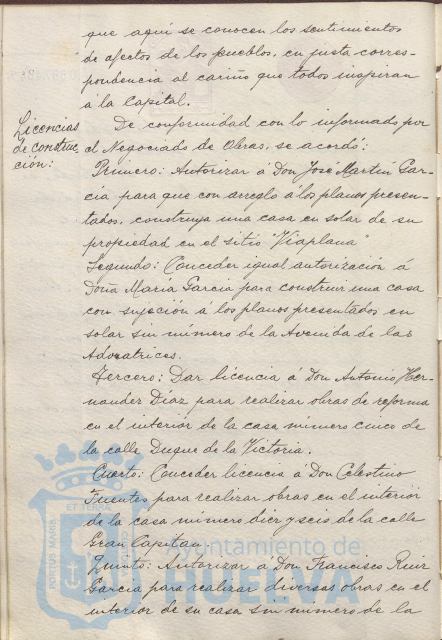 que aquí se conocen los sentimientos
de afectos de los pueblos, en justa corres-
pondencia al cariño que todos inspiran
á la Capital.
Licencias
de construc
ción:
De conformidad con lo informado por
el Negociado de Obras, se acordó:
Primero: Autorizar á Don José Martín Gar-
cía para que con arreglo á los planos presen-
tados, construya una casa en solar de su
propiedad en el sitio "Viaplana"
Segundo: Conceder igual autorización á
Doña María García para construir una casa
con sujeción á los planos presentados en
solar sin número de la Avenida de las
Adoratrices.
Tercero: Dar licencia á Don Antonio Her-
nander Díaz para realizar obras de reforma
en el interior de la casa número cinco de
la calle Duque de la Victoria.
Cuarto: Conceder licencia á Don Celestino
Fuentes para realizar obras en el interior
de la casa número diez y seis de la calle
Gran Capitan.
Quinto: Autorizar á Don Francisco Ruiz
García para realizar diversas obras en el
interior de su casa sin número de la
PORTUS MARIS
ET TERRÆ
Ayuntamiento de
HUELVA